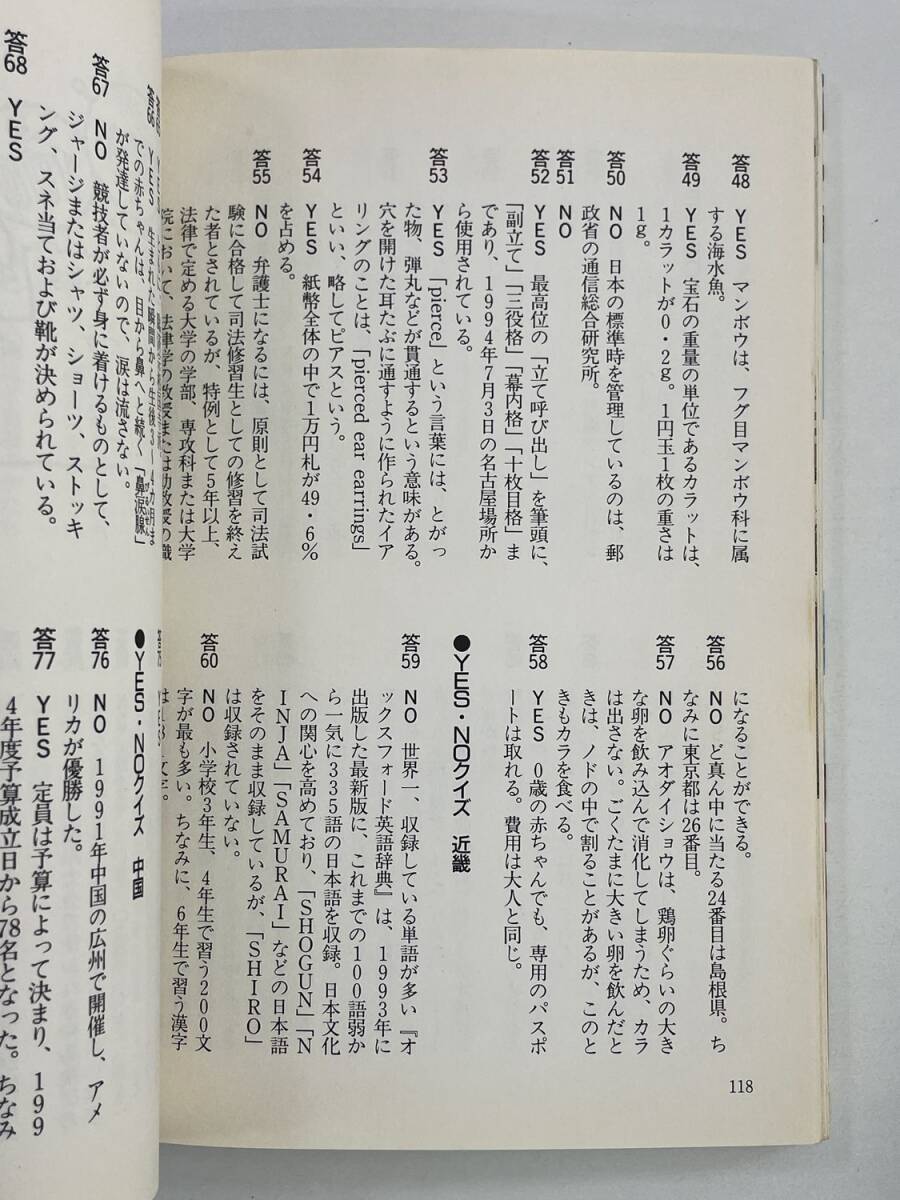 答48 YES マンボウは、フグ目マンボウ科に属
する海水魚。
答49 YES 宝石の重量の単位であるカラットは、
1カラットが0・2g。1円玉1枚の重さは
1g。
答50 NO 日本の標準時を管理しているのは、郵
政省の通信総合研究所。
答51 NO
答52 YES 最高位の「立て呼び出し」を筆頭に、
「副立て」「三役格」「幕内格」「十枚目格」ま
であり、1994年7月3日の名古屋場所か
ら使用されている。
答53 YES 「pierce」という言葉には、とがっ
た物、弾丸などが貫通するという意味がある。
穴を開けた耳たぶに通すように作られたイア
リングのことは、「pierced ear earrings」
といい、略してピアスという。
答54 YES 紙幣全体の中で1万円札が49・6%
を占める。
答55 NO 弁護士になるには、原則として司法試
験に合格して司法修習生としての修習を終え
た者とされているが、特例として5年以上、
法律で定める大学の学部、専攻科または大学
院において、法律学の教授または助教授の職
になることができる。
答56 NO ど真ん中に当たる24番目は島根県。ち
なみに東京都は26番目。
答57 NO アオダイショウは、鶏卵ぐらいの大き
な卵を飲み込んで消化してしまうため、カラ
は出さない。ごくたまに大きい卵を飲んだと
きは、ノドの中で割ることがあるが、このと
きもカラを食べる。
答58 YES 0歳の赤ちゃんでも、専用のパスポ
ートは取れる。費用は大人と同じ。
●YES・NOクイズ 近畿
答59 NO 世界一、収録している単語が多い『オ
ックスフォード英語辞典』は、1993年に
出版した最新版に、これまでの100語弱か
ら一気に335語の日本語を収録。日本文化
への関心を高めており、「SHOGUN」「N
INJA」「SAMURAI」などの日本語
をそのまま収録しているが、「SHIRO」
は収録されていない。
答60 NO 小学校3年生、4年生で習う200文
字が最も多い。ちなみに、6年生で習う漢字
118
答66 YES 生まれた瞬間から生後3〜4カ月ま
での赤ちゃんは、目から鼻へと続く「鼻涙腺」
が発達していないので、涙は流さない。
答67 NO 競技者が必ず身に着けるものとして、
ジャージまたはシャツ、ショーツ、ストッキ
ング、スネ当ておよび靴が決められている。
答68 YES
●YES・NOクイズ 中国
答76 NO 1991年中国の広州で開催し、アメ
リカが優勝した。
答77 YES 定員は予算によって決まり、199
4年度予算成立日から78名となった。ちなみ